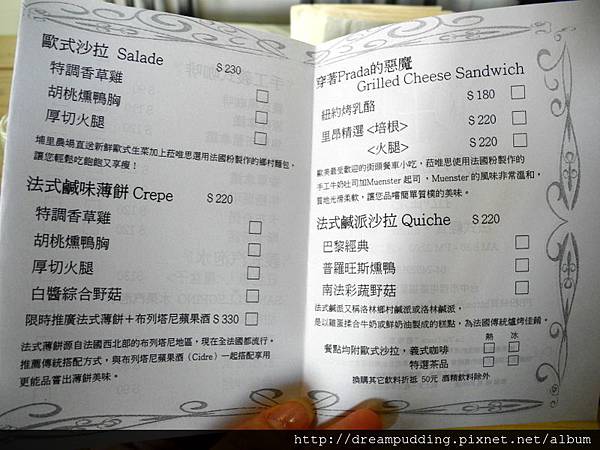 歐式沙拉 Salade $230
特調香草雞
胡桃燻鴨胸
厚切火腿
埔里農場直送新鮮歐式生菜加上菈唯思選用法國粉製作的鄉村麵包,
讓您輕鬆吃飽飽又享瘦!
法式鹹味薄餅 Crepe $220
特調香草雞
胡桃燻鴨胸
厚切火腿
白醬綜合野菇
限時推廣法式薄餅+布列塔尼蘋果酒 $330
法式薄餅源自法國西北部的布列塔尼地區,現在全法國都流行。
推薦傳統搭配方式,與布列塔尼蘋果酒(Cidre)一起搭配享用
更能品嘗出薄餅美味。
穿著Prada的惡魔
Grilled Cheese Sandwich
紐約烤乳酪 $180
里昂精選 <培根> $220
<火腿> $220
歐美最受歡迎的街頭餐車小吃,菈唯思使用法國粉製作的
手工牛奶吐司加Muenster 起司,Muenster 的風味非常溫和,
質地光滑柔軟,讓您品嚐簡單質樸的美味。
法式鹹派沙拉 Quiche $220
巴黎經典
普羅旺斯燻鴨
南法彩蔬野菇
法式鹹派又稱洛林鄉村鹹派或洛林鹹派,
是以雞蛋揉合牛奶或鮮奶油製成的糕點,為法國傳統爐烤佳餚。
熱 冰
餐點均附歐式沙拉,義式咖啡
特選茶品
換購其它飲料折抵 50元 酒精飲料除外
http://dreampudding.pixnet.net/album